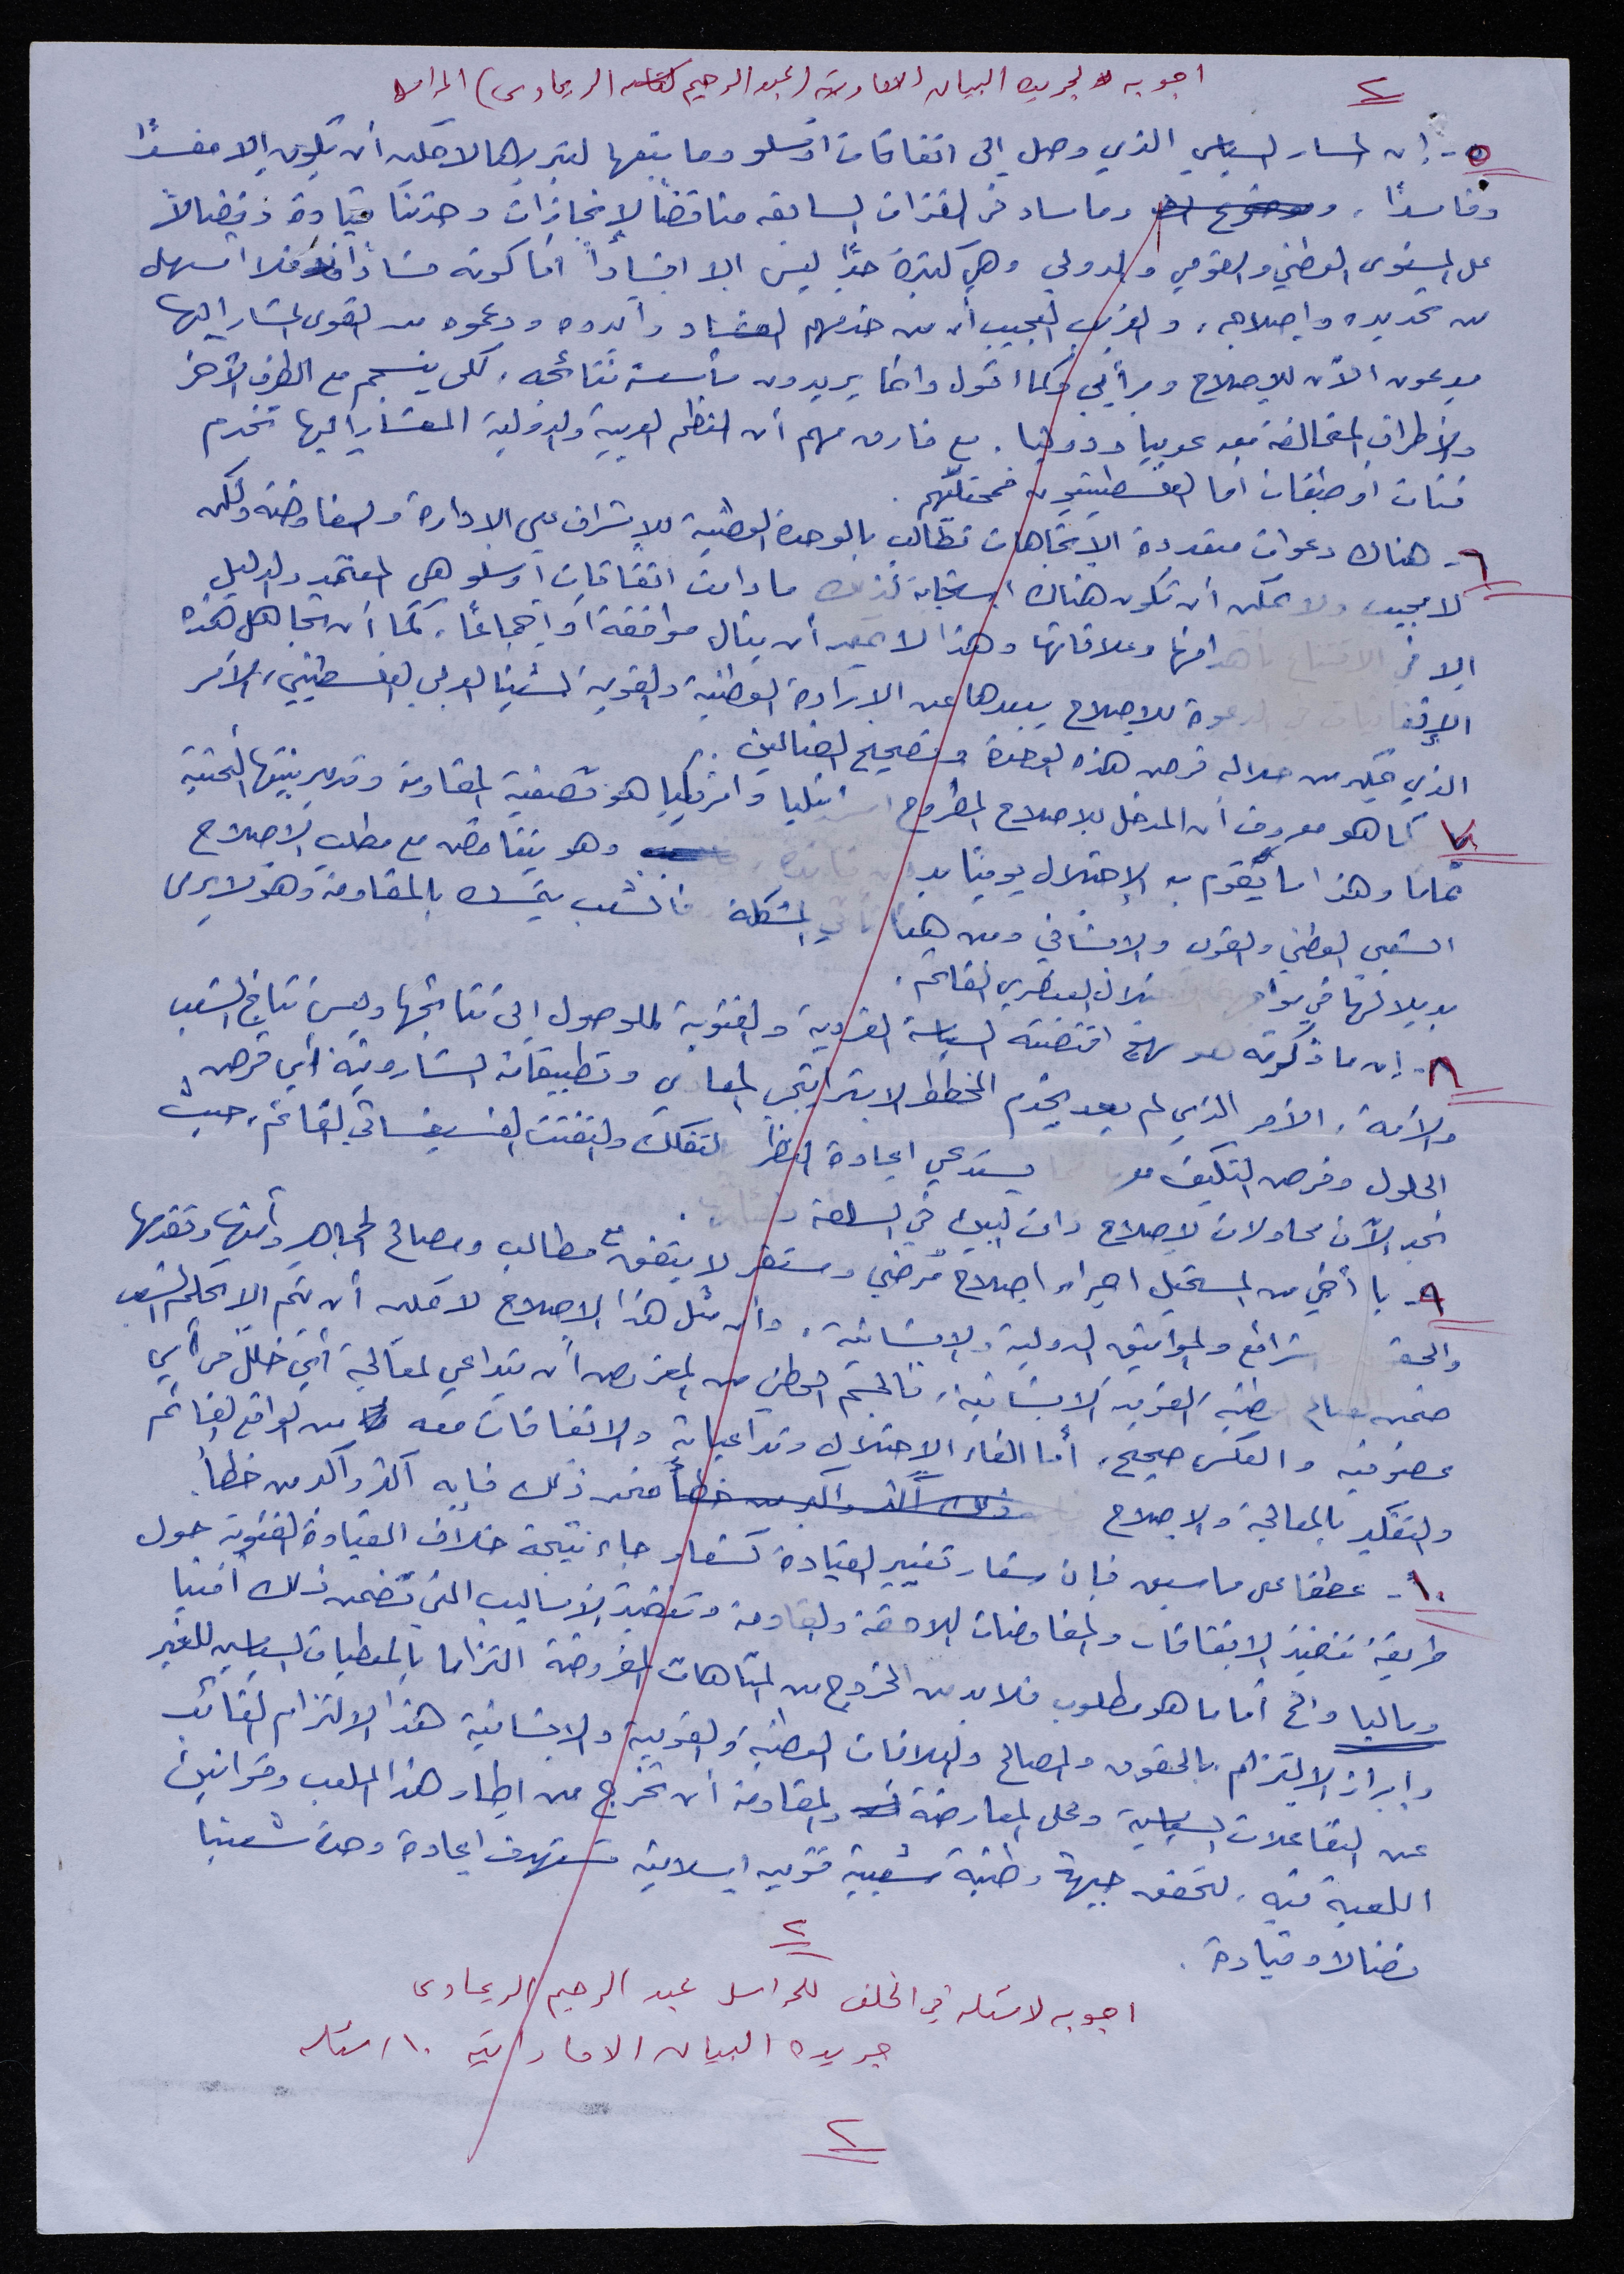 ٢
اجوبه لجريده البيان الاماراتية (عبد الرحيم الريماوى) المراسل
٥- إن المسار السياسي الذي وصل إلى اتفاقات اوسلو وما يتبعها لتبريرها لا يمكن أن يكون إلا مفسدًا
وفاسدًا، وما ساد في الفترات السابقه مناقضاً لإنجازات وحدتنا قيادة ونضالاً
على المستوى الوطني والقومي والدولي وهي كبيرة جدًا ليس إلا افسادًا أما كونه فسادًا فلا اسهل
من تحديده وإصلاحه، والغريب العجيب أن من خدمهم الفساد وأيدوه ودعموه من القوى المشار إليها
يدعون الآن للإصلاح وبرأيي وكما اقول دائما يريدون مأسسة نتائجه، لكي ينسجم مع الطرف الآخر
والأطراف المتحالفة معه عربيا ودوليا. مع فارق مهم أن النظم العربية والدولية المشار إليها تخدم
فئات أو طبقات أما الفلسطينيون فمحتلّهم.
٦- هناك دعوات متعددة الاتجاهات تطالب بالوحدة الوطنية للإشراف على الإدارة والمفاوضة ولكن
لا مجيب ولا يمكن أن تكون هناك استجابة لذلك ما دامت اتفاقات اوسلو هي المعتمد والدليل
إلا في الاقتناع بأهدافها وعلاقاتها وهذا لا يمكن أن ينال موافقة أو إجماعًا، كما أن تجاهل هذه
الإتفاقيات في الدعوة للإصلاح يبعدها عن الإرادة الوطنية والقومية لشعبنا العربي الفلسطيني، الأمر
الذي يمكن من خلاله فرض هذه الوحدة وتصحيح النضالين.
٧- كما هو معروف أن المدخل للإصلاح المطروح اسرائيليا وامريكيا هو تصفية المقاومة وتدمير بنيتها التحتية
تمامًا وهذا ما يقوم به الإحتلال يوميًا وهو يتناقض مع مطلب الإصلاح
الشعبي الوطني والقومي والإنساني ومن هنا تأتي المشكلة فالشعب يتمسك بالمقاومة وهو لا يرى
بديلا لها في مواجهة الاحتلال العنصري القائم.
٨- إن ما ذكرته هو نهج اقتضته السياسة الفردية والفئوية للوصول إلى نتائجها وليس نتاج الشعب
والأمة، الأمر الذي لم يعد يخدم المخطط الاستراتيجي المعادي وتطبيقاته الشارونية أي فرض
الحلول وفرض التكيف معها يستدعي إعادة النظر التفكك والتفتت الفسيفسائي القائم، حيث
نجد الآن محاولات لإصلاح ذات البين في السلطة.
٩- يا أخي من المستحيل اجراء اصلاح مُرضي ومستقر لا يتفق مع مطالب ومصالح الجماهير وأمنها وتقدمها
والحق والشرائع والمواثيق الدولية والإنسانية، وأن مثل هذا الإصلاح لا يمكن أن يتم إلا بحكم الشعب
ضمن الوطنية القومية الإنسانية، فالجسم الوطني من المفروض أن يتداعى لمعالجة أي خلل في أي
عضو فيه والعكس صحيح، أما الغاء الاحتلال وتداعياته والاتفاقات معه من الواقع القائم
والتفكير بالمعالجة والإصلاح ضمن ذلك فإنه أكثر وأكبر من خطأ.
١٠- عطفا على ما سبق فإن شعار تغيير القيادة كشعار جاء نتيجة خلاف القيادة الفئوية حول
طريقة تنفيذ الاتفاقات والمفاوضات اللاحقة والقادمة وتنفيذ الأساليب التي تضمن ذلك أمنيا
وماليا والخ أما ما هو مطلوب فلا بد من الخروج من المتاهات المفروضة التزاما بالمعطيات السياسية للغير
وإبراز الالتزام بالحقوق والمصالح والعلاقات الوطنية والقومية والإنسانية هذا الالتزام الغائب
عن التفاعلات السياسية وعلى المعارضة والمقاومة أن تخرج من إطار هذا الملعب وقوانين
اللعبة فيه، لتحقق جبهة وطنية شعبية قومية إسلامية تستهدف إعادة وحدة شعبنا
نضالا وقيادة.
٢
اجوبه لاسئله في الخلف للمراسل عبد الرحيم الريماوى
جريده البيان الاماراتية ١٠ اسئله
٢